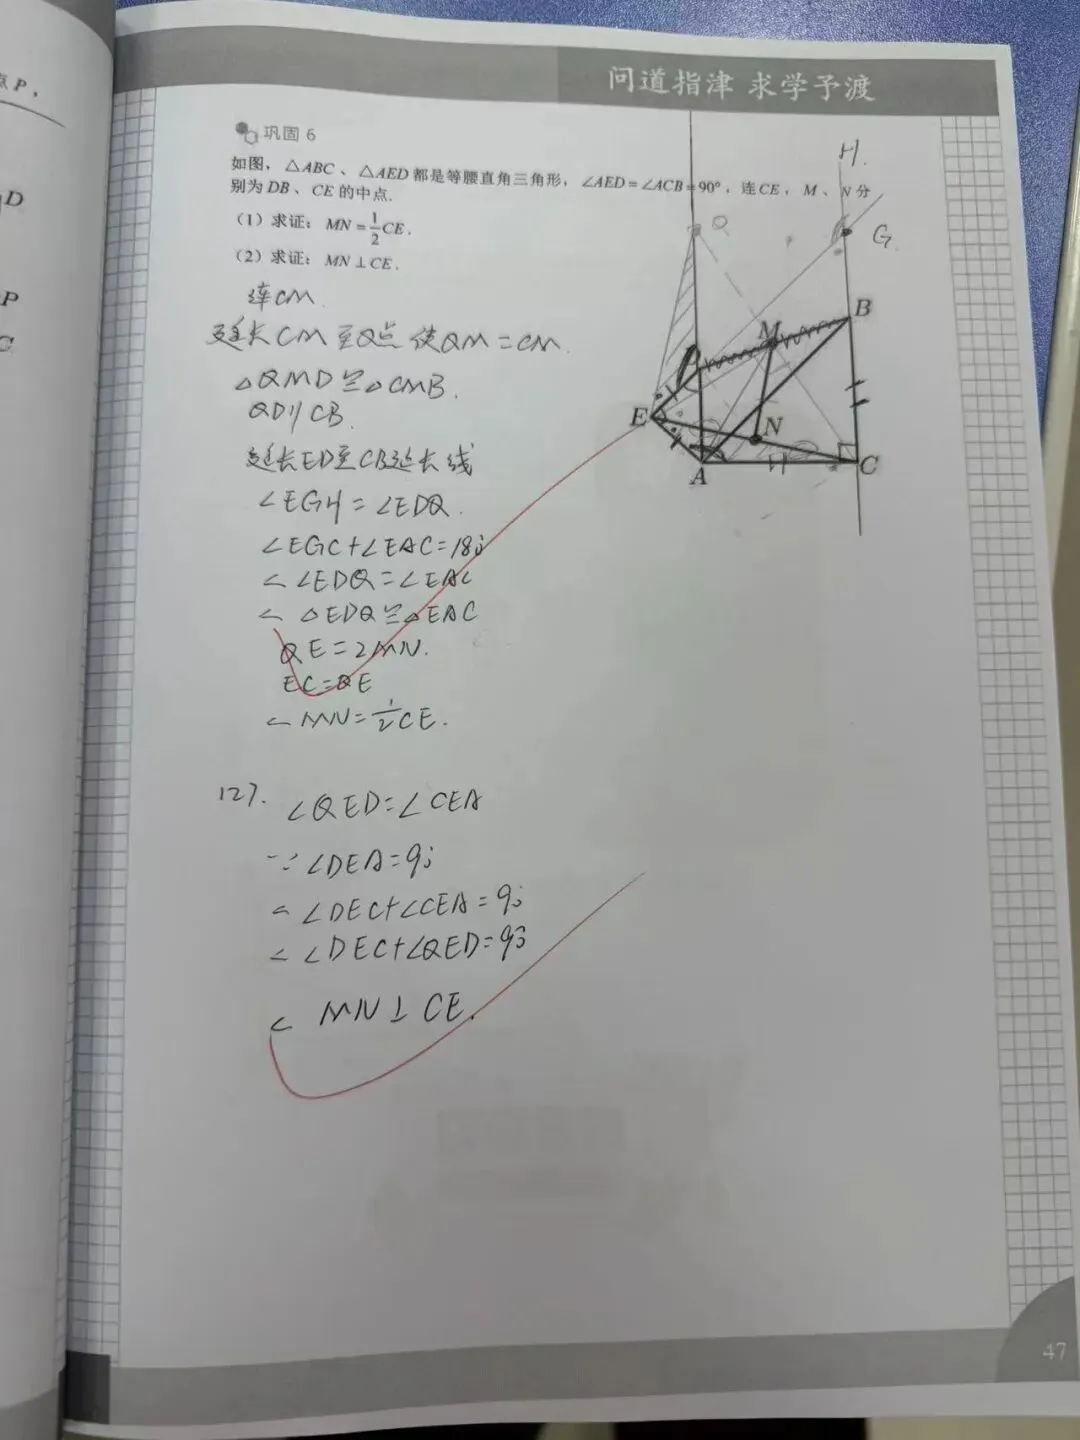 点P,
D
P
C
问道指津 求学予渡
巩固 6
如图，△ABC、△AED都是等腰直角三角形，∠AED=∠ACB=90°，连CE，M、N分
别为DB、CE的中点.
（1）求证：MN=1/2CE.
（2）求证：MN⊥CE.
H.
Q
G.
B
M
D
E
N
A
C
连CM
延长CM至Q点 使QM=CM.
△QMD≌△CMB.
QD∥CB.
延长ED至CB延长线
∠EGH=∠EDQ.
∠EGC+∠EAC=180
∴∠EDQ=∠EAC
∴△EDQ≌△EAC
QE=2MN.
EC=QE
∴MN=1/2CE.
(2).
∠QED=∠CEA
∵∠DEA=90
∴∠DEC+∠CEA=90
∴∠DEC+∠QED=90
∴MN⊥CE.
47